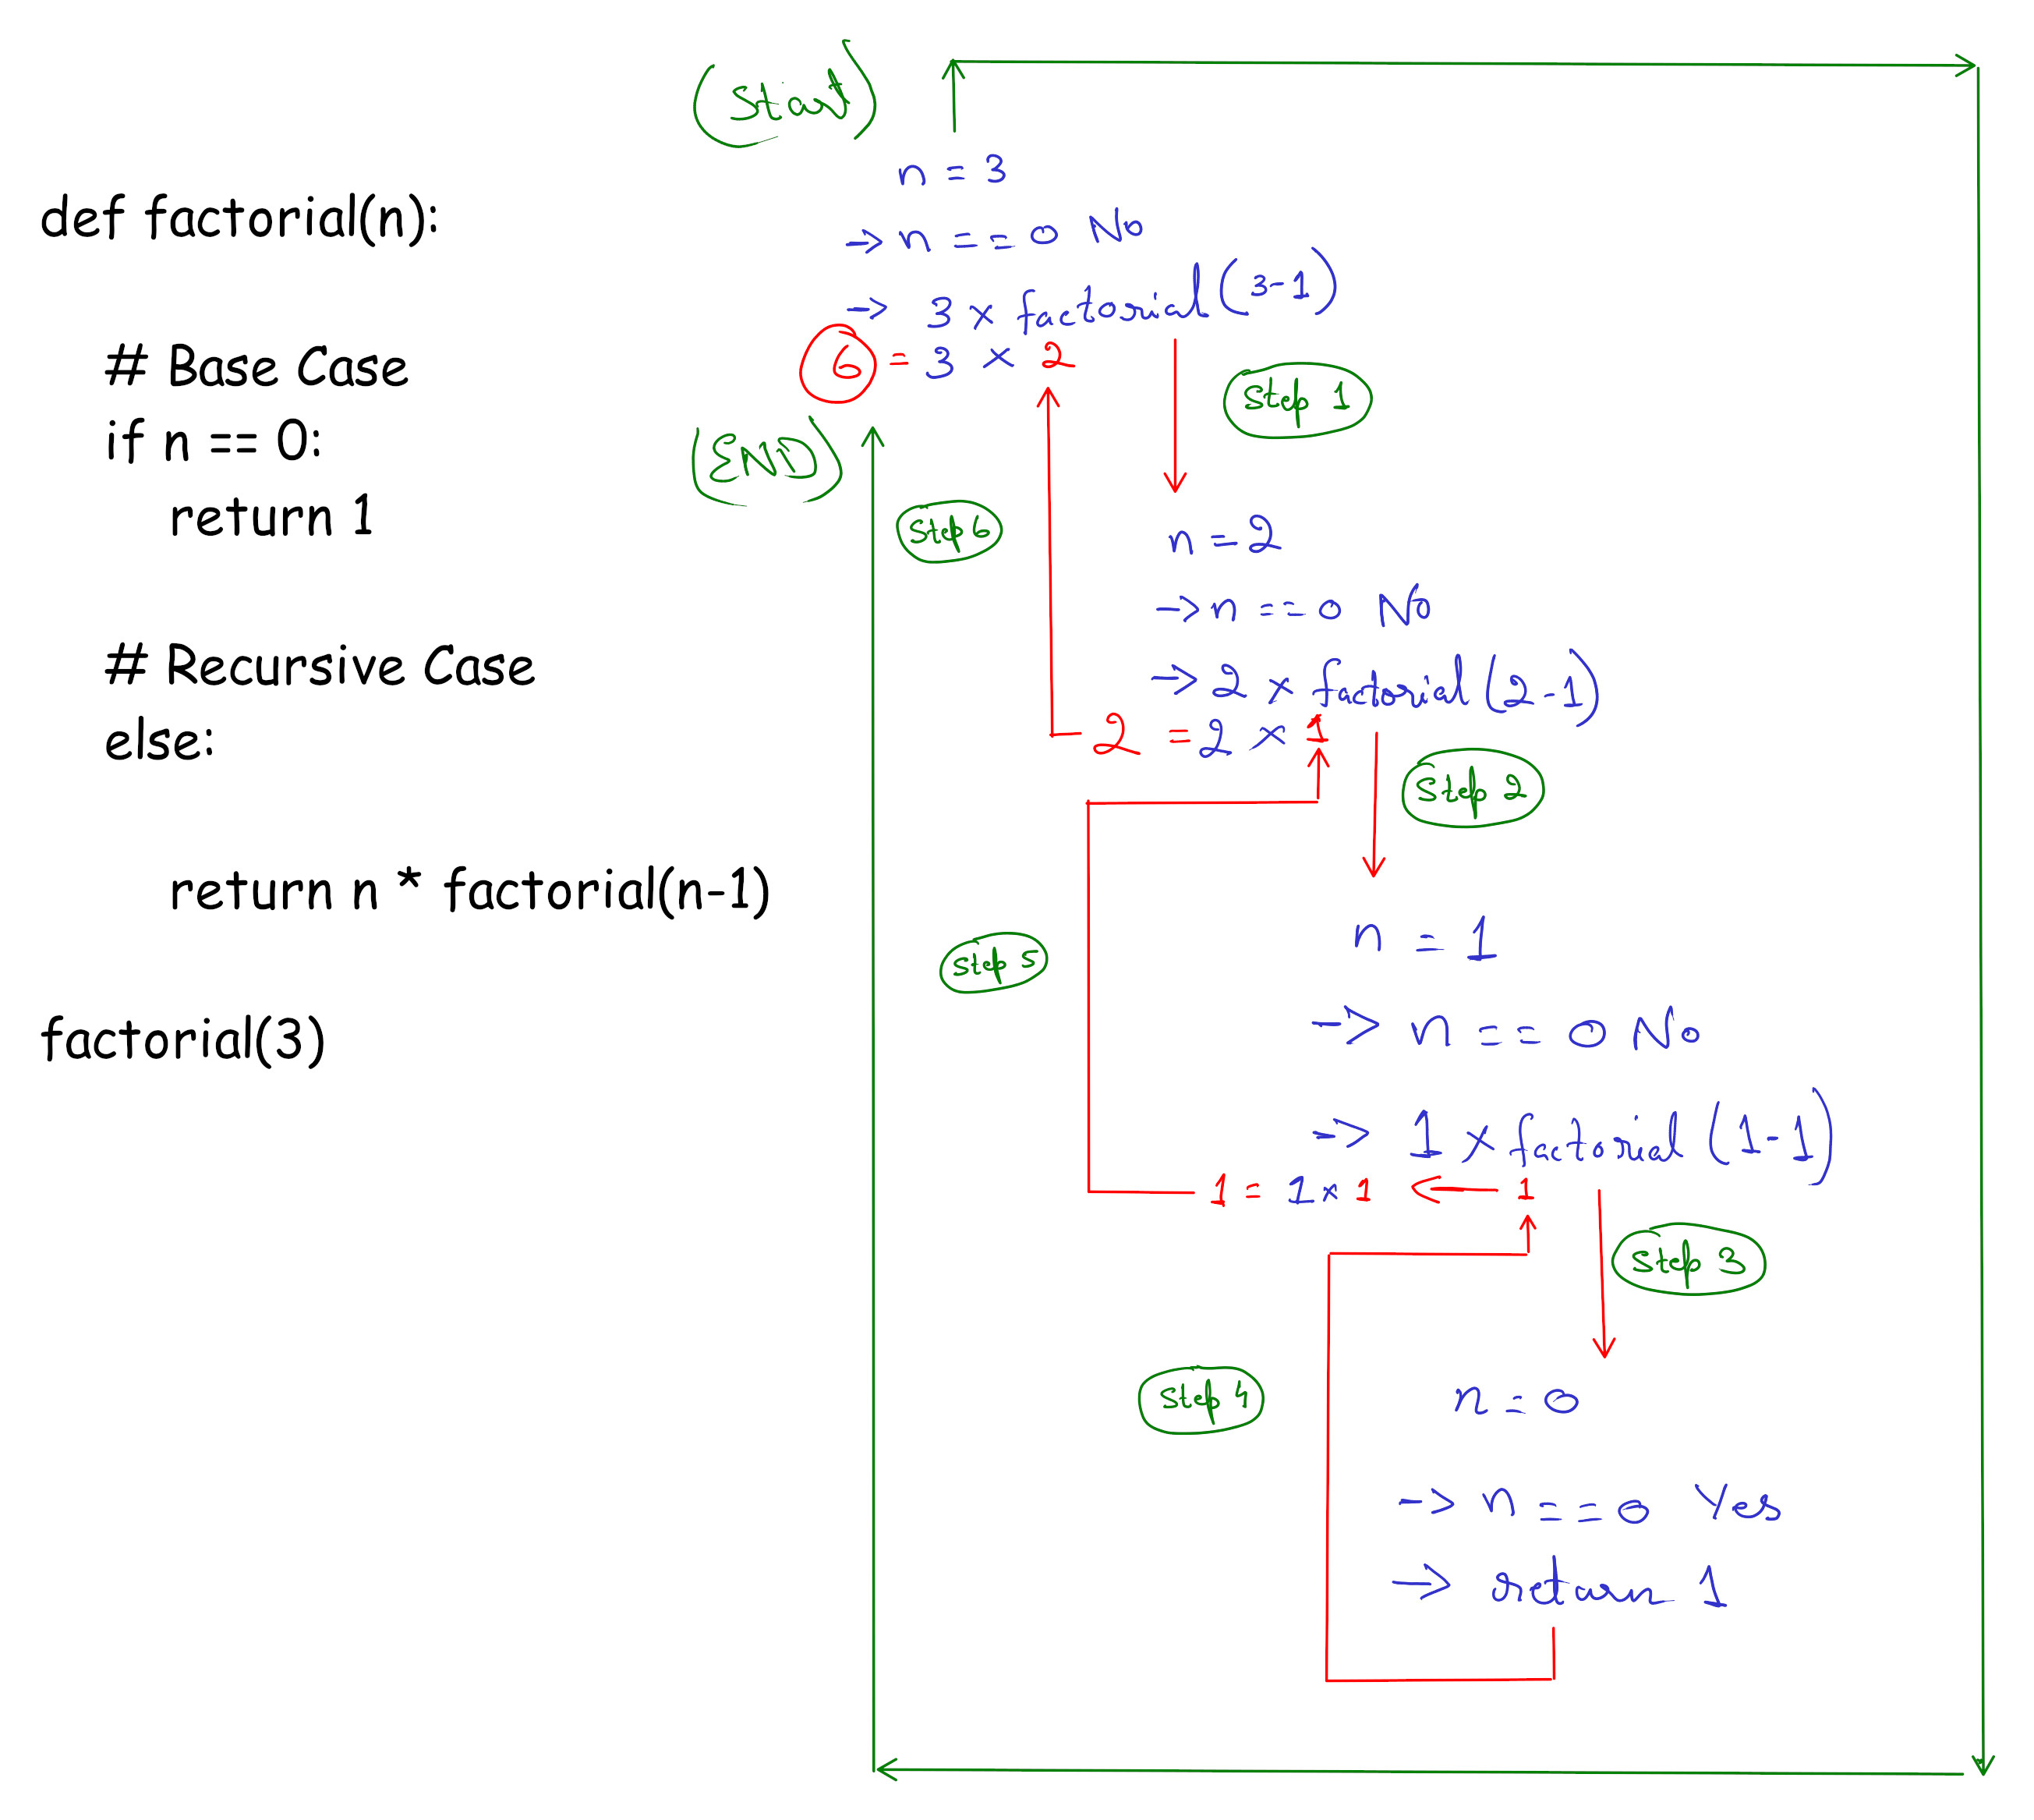 def factorial(n):
# Base Case
if n == 0:
return 1
# Recursive Case
else:
return n * factorial(n-1)
factorial(3)
(Start)
n = 3
-> n == 0 No
-> 3 x factorial(3-1)
6 = 3 x 2
Step 1
(END)
Step 6
n = 2
-> n == 0 No
-> 2 x factorial(2-1)
2 = 2 x 1
Step 2
n = 1
Step 5
-> n == 0 No
-> 1 x factorial(1-1)
1 = 1 x 1 <- 1
Step 3
Step 4
n = 0
-> n == 0 Yes
-> return 1